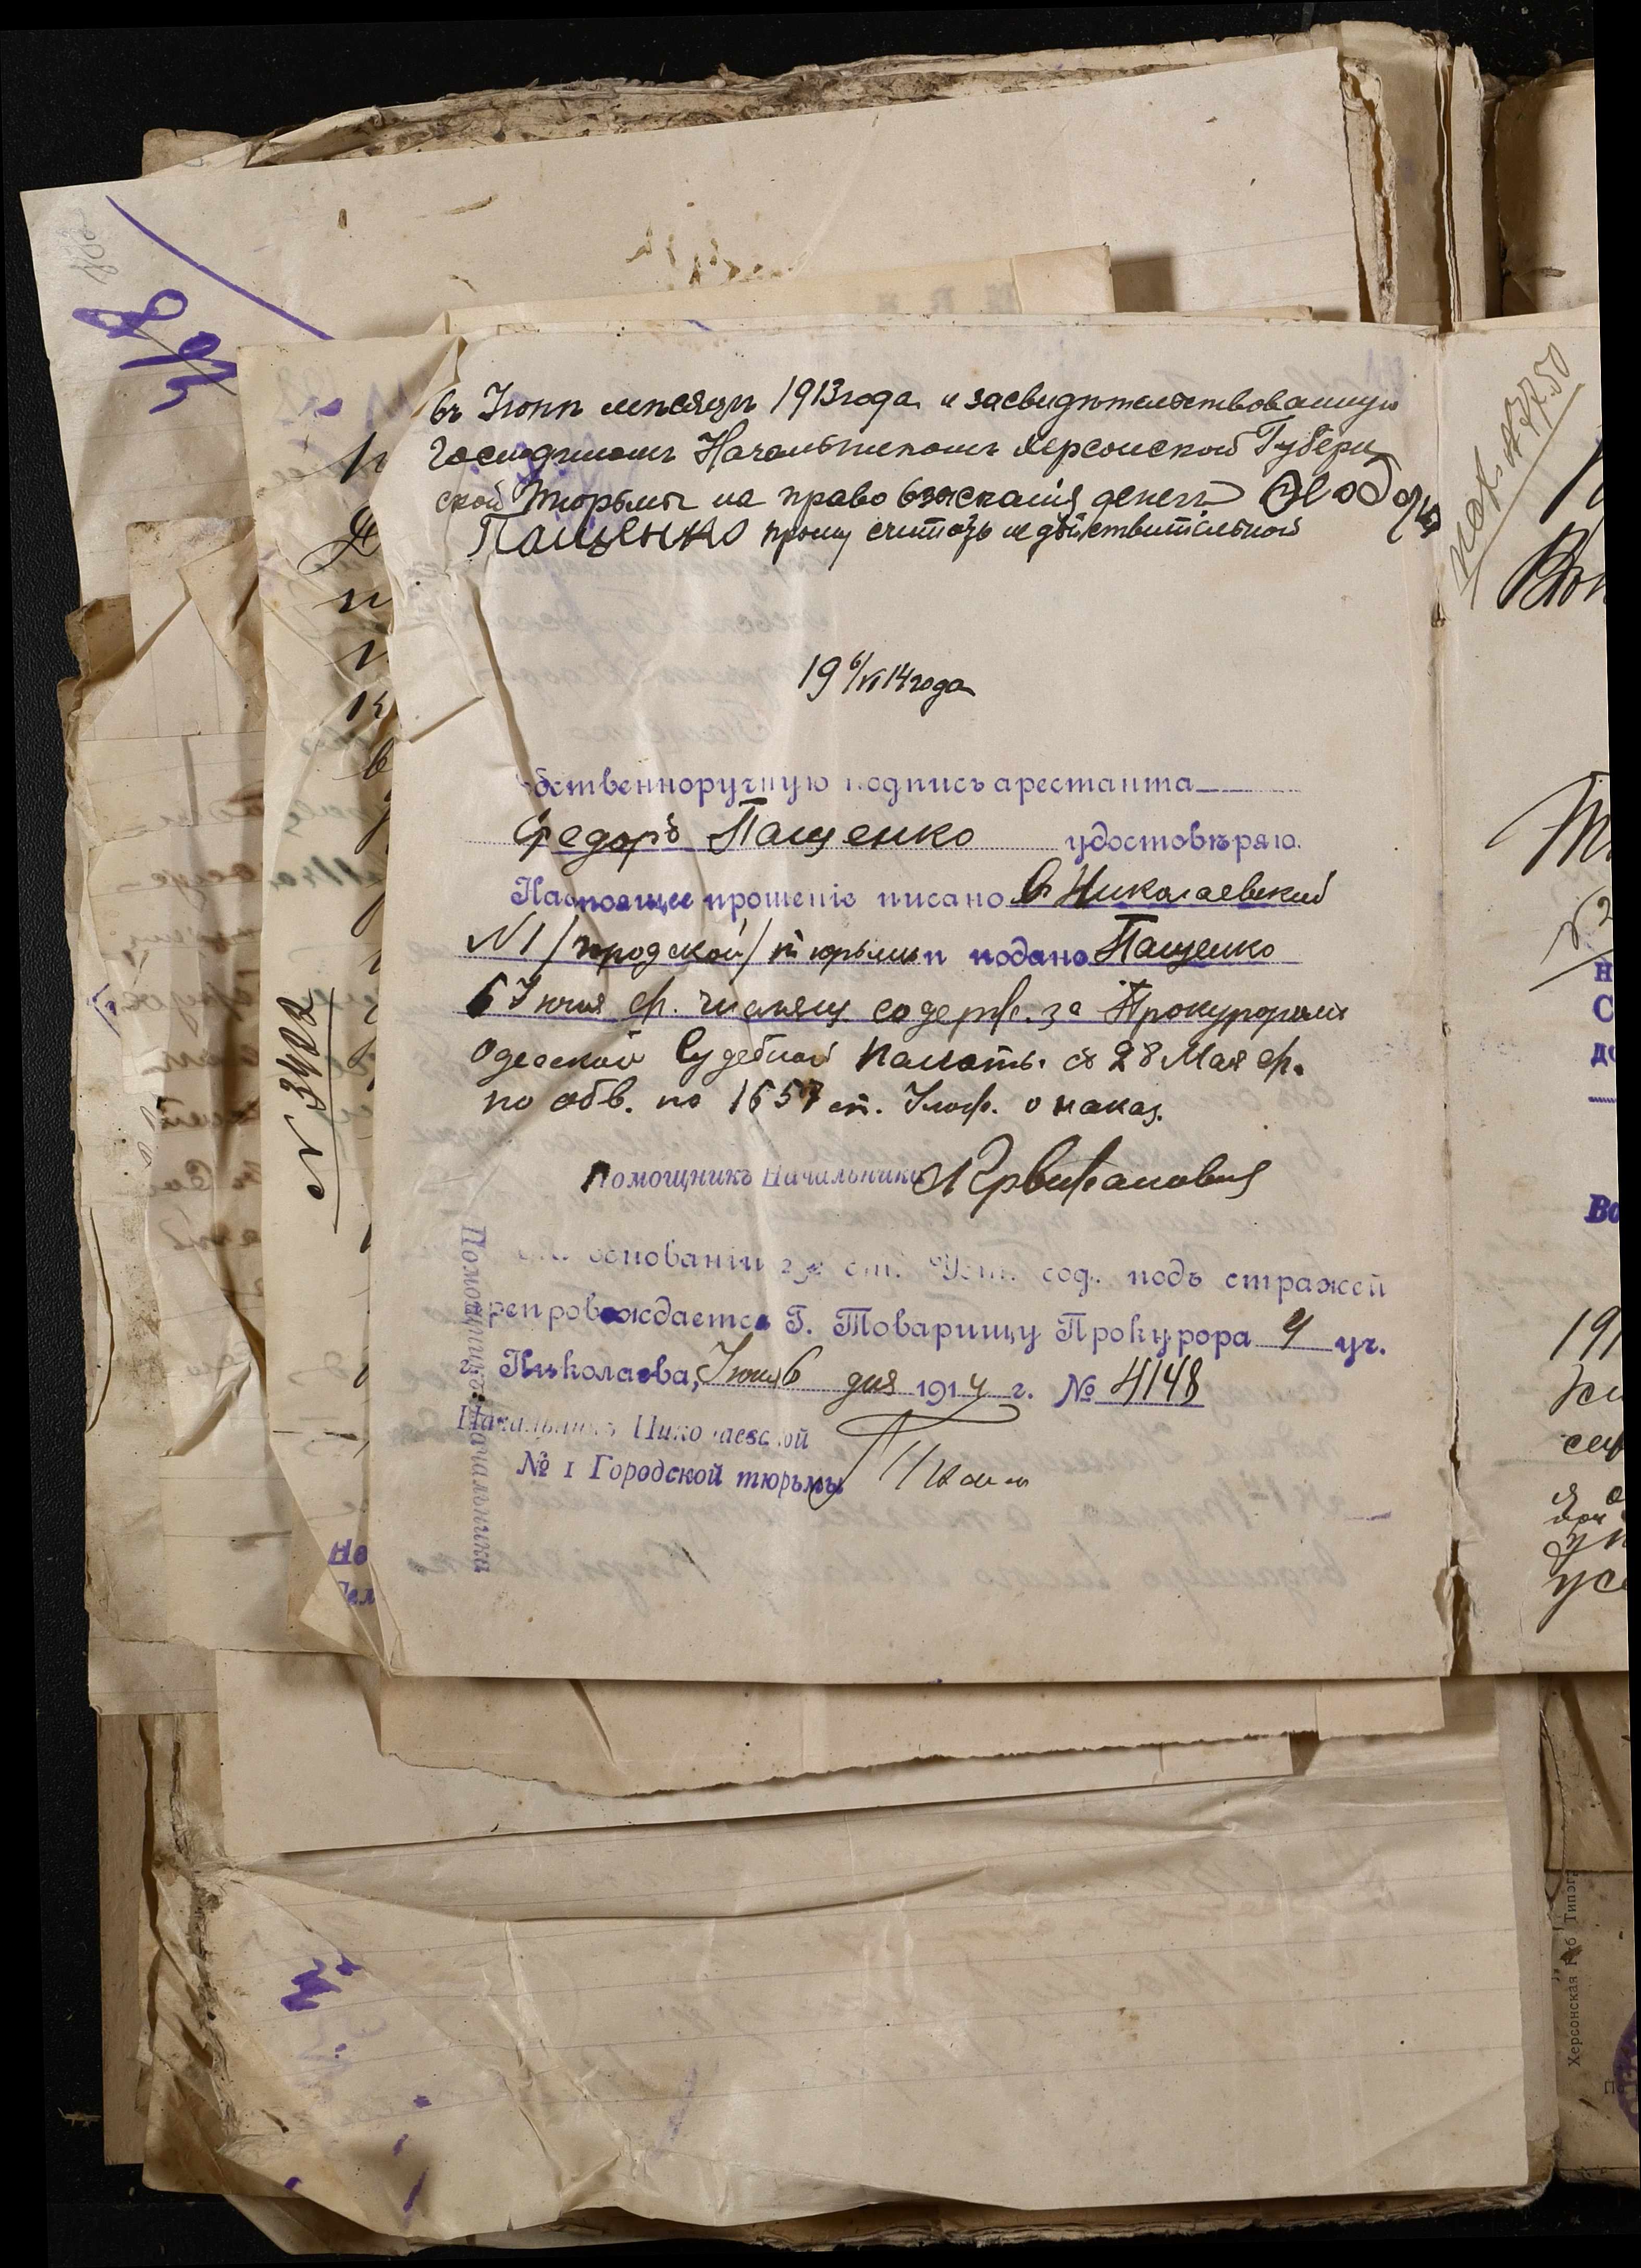 въ Іюнѣ мѣсяцѣ 1913 года и засвидѣтельствованную
Господиномъ Начальникомъ Херсонской Губерн
ской Тюрьмы на право взысканія денегъ Ѳеодоръ
Пащенко прошу считать недѣйствительной
19 6/VI 14 года
бственноручную подпись арестанта
Федоръ Пащенко удостовѣряю.
Настоящее прошеніе писано въ Николаевской
№1 /городской/ тюрьмѣ и подано Пащенко
6 Іюня с/г. числящ. содерж. за Прокуроромъ
Одесской Судебной Палаты. съ 28 Мая с/г.
по обв. по 1657 ст. Улож. о наказ.
Помощникъ Начальника
основаніи ст. Уст. сод. подъ стражей
репровождается Г. Товарищу Прокурора 4 уч.
г. Николаева, Іюня 6 дня 1914 г. № 4148
Начальникъ Николаевской
№ 1 Городской тюрьмы
Помощникъ Начальника
N 3402
Херсонская Губ. Типог